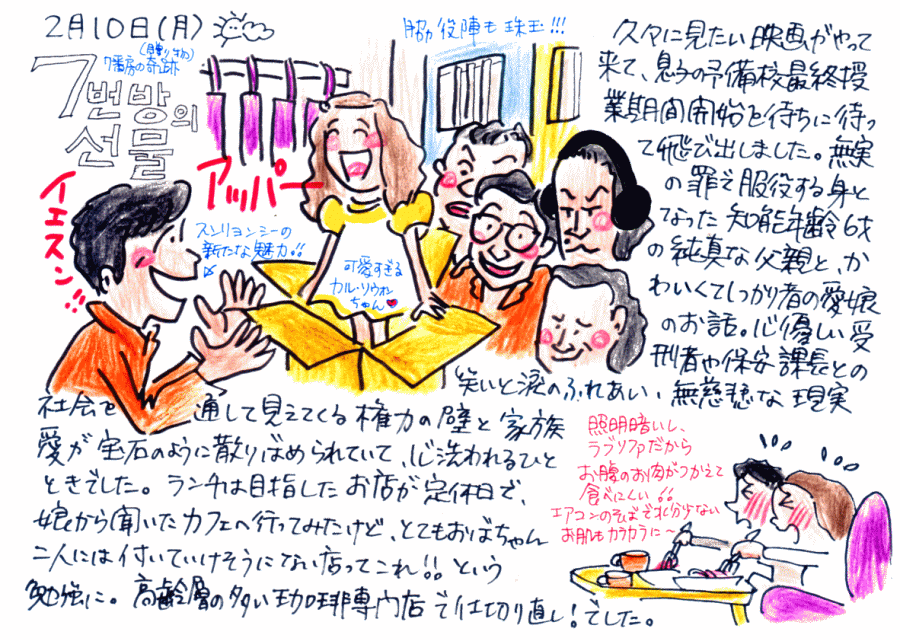 2月10日(月)
(贈り物)
7番房の奇跡
7번방의
선물
イェスン!!
アッパー
スンリョンシーの
新たな魅力!!
可愛すぎる
カル・ソウォン
ちゃん
脇役陣も珠玉!!!
久々に見たい映画がやって
来て、息子の予備校最終授
業期間開始を待ちに待っ
て飛び出しました。無実
の罪で服役する身と
なった知能年齢6才
の純真な父親と、か
わいくてしっかり者の愛娘
のお話。心優しい受
刑者や保安課長との
笑いと涙のふれあい、無慈悲な現実
社会を通して見えてくる権力の壁と家族
愛が宝石のように散りばめられていて、心洗われるひと
ときでした。ランチは目指したお店が定休日で、
娘から聞いたカフェへ行ってみたけど、とてもおばちゃん
二人には付いていけそうにない店ってこれ!!という
勉強に。高齢層の多い珈琲専門店で仕切り直し!でした。
照明暗いし、
ラブソファだから
お腹のお肉がつかえて
食べにくい!!
エアコンのそばで水分少ない
お肌もカラカラに〜